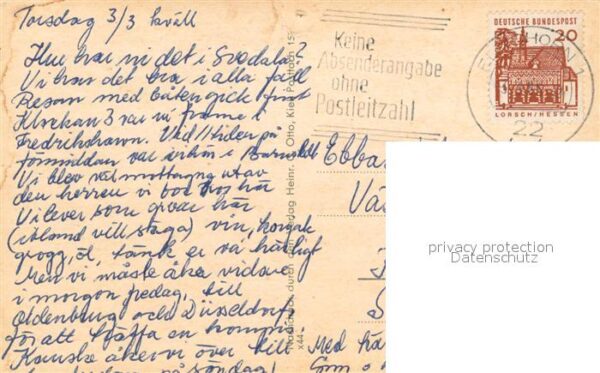 Torsdag 3/3 kväll
Hur har ni det i Svedala?
Vi har det bra i alla fall
Resan med båten gick fint
Klockan 3 var vi framme i
Fredrikshavn. Vid tiden på
förmiddan var vi
Vi blev väl mottagna utav
den herren vi bor hos här
Vi lever som grevar här
(ibland vill säga) vin, konjak
grogg, öl, tänk er va härligt
Men vi måste åka vidare
i morgon fredag, till
Oldenburg och Düsseldorf
för att träffa en kompis
Kanske åker vi över till
på söndag!
Med hä
Som
Ebba
Vä
Keine
Absenderangabe
ohne
Postleitzahl
DEUTSCHE BUNDESPOST
20
LORSCH/HESSEN
22
Heinr. Otto, Kiel Postfach 15
x44
privacy protection
Datenschutz